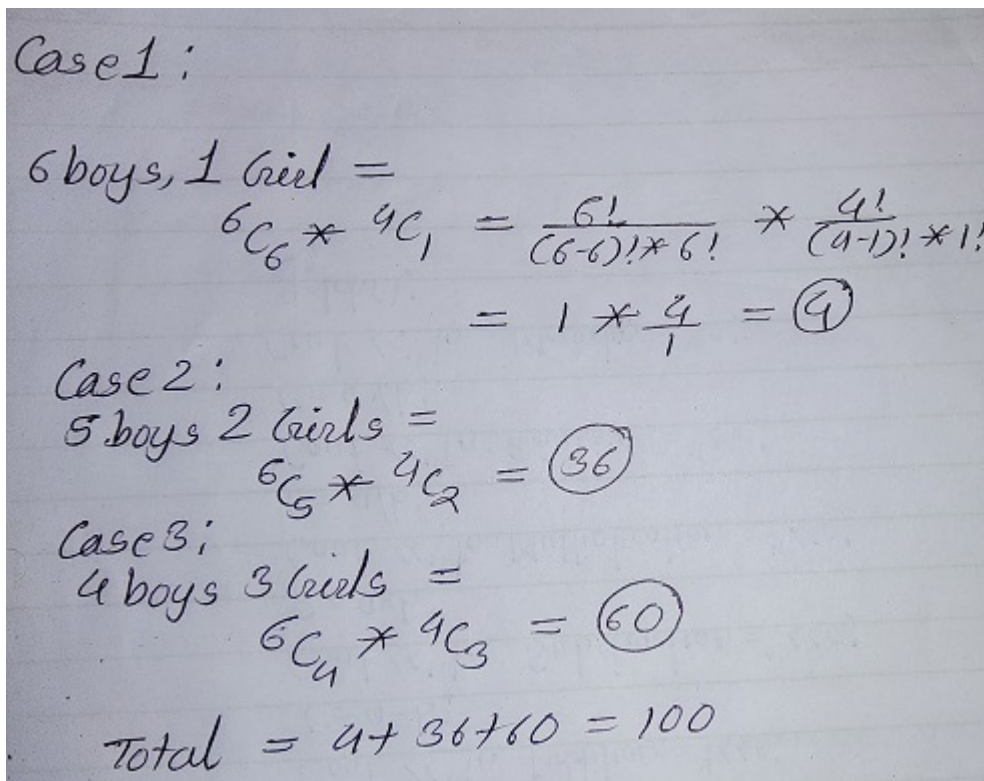 Case 1 :
6 boys, 1 Girl =
⁶C₆ * ⁴C₁ = 6! / (6-6)! * 6! * 4! / (4-1)! * 1!
= 1 * 4/1 = 4
Case 2 :
5 boys 2 Girls =
⁶C₅ * ⁴C₂ = 36
Case 3 ;
4 boys 3 Girls =
⁶C₄ * ⁴C₃ = 60
Total = 4 + 36 + 60 = 100